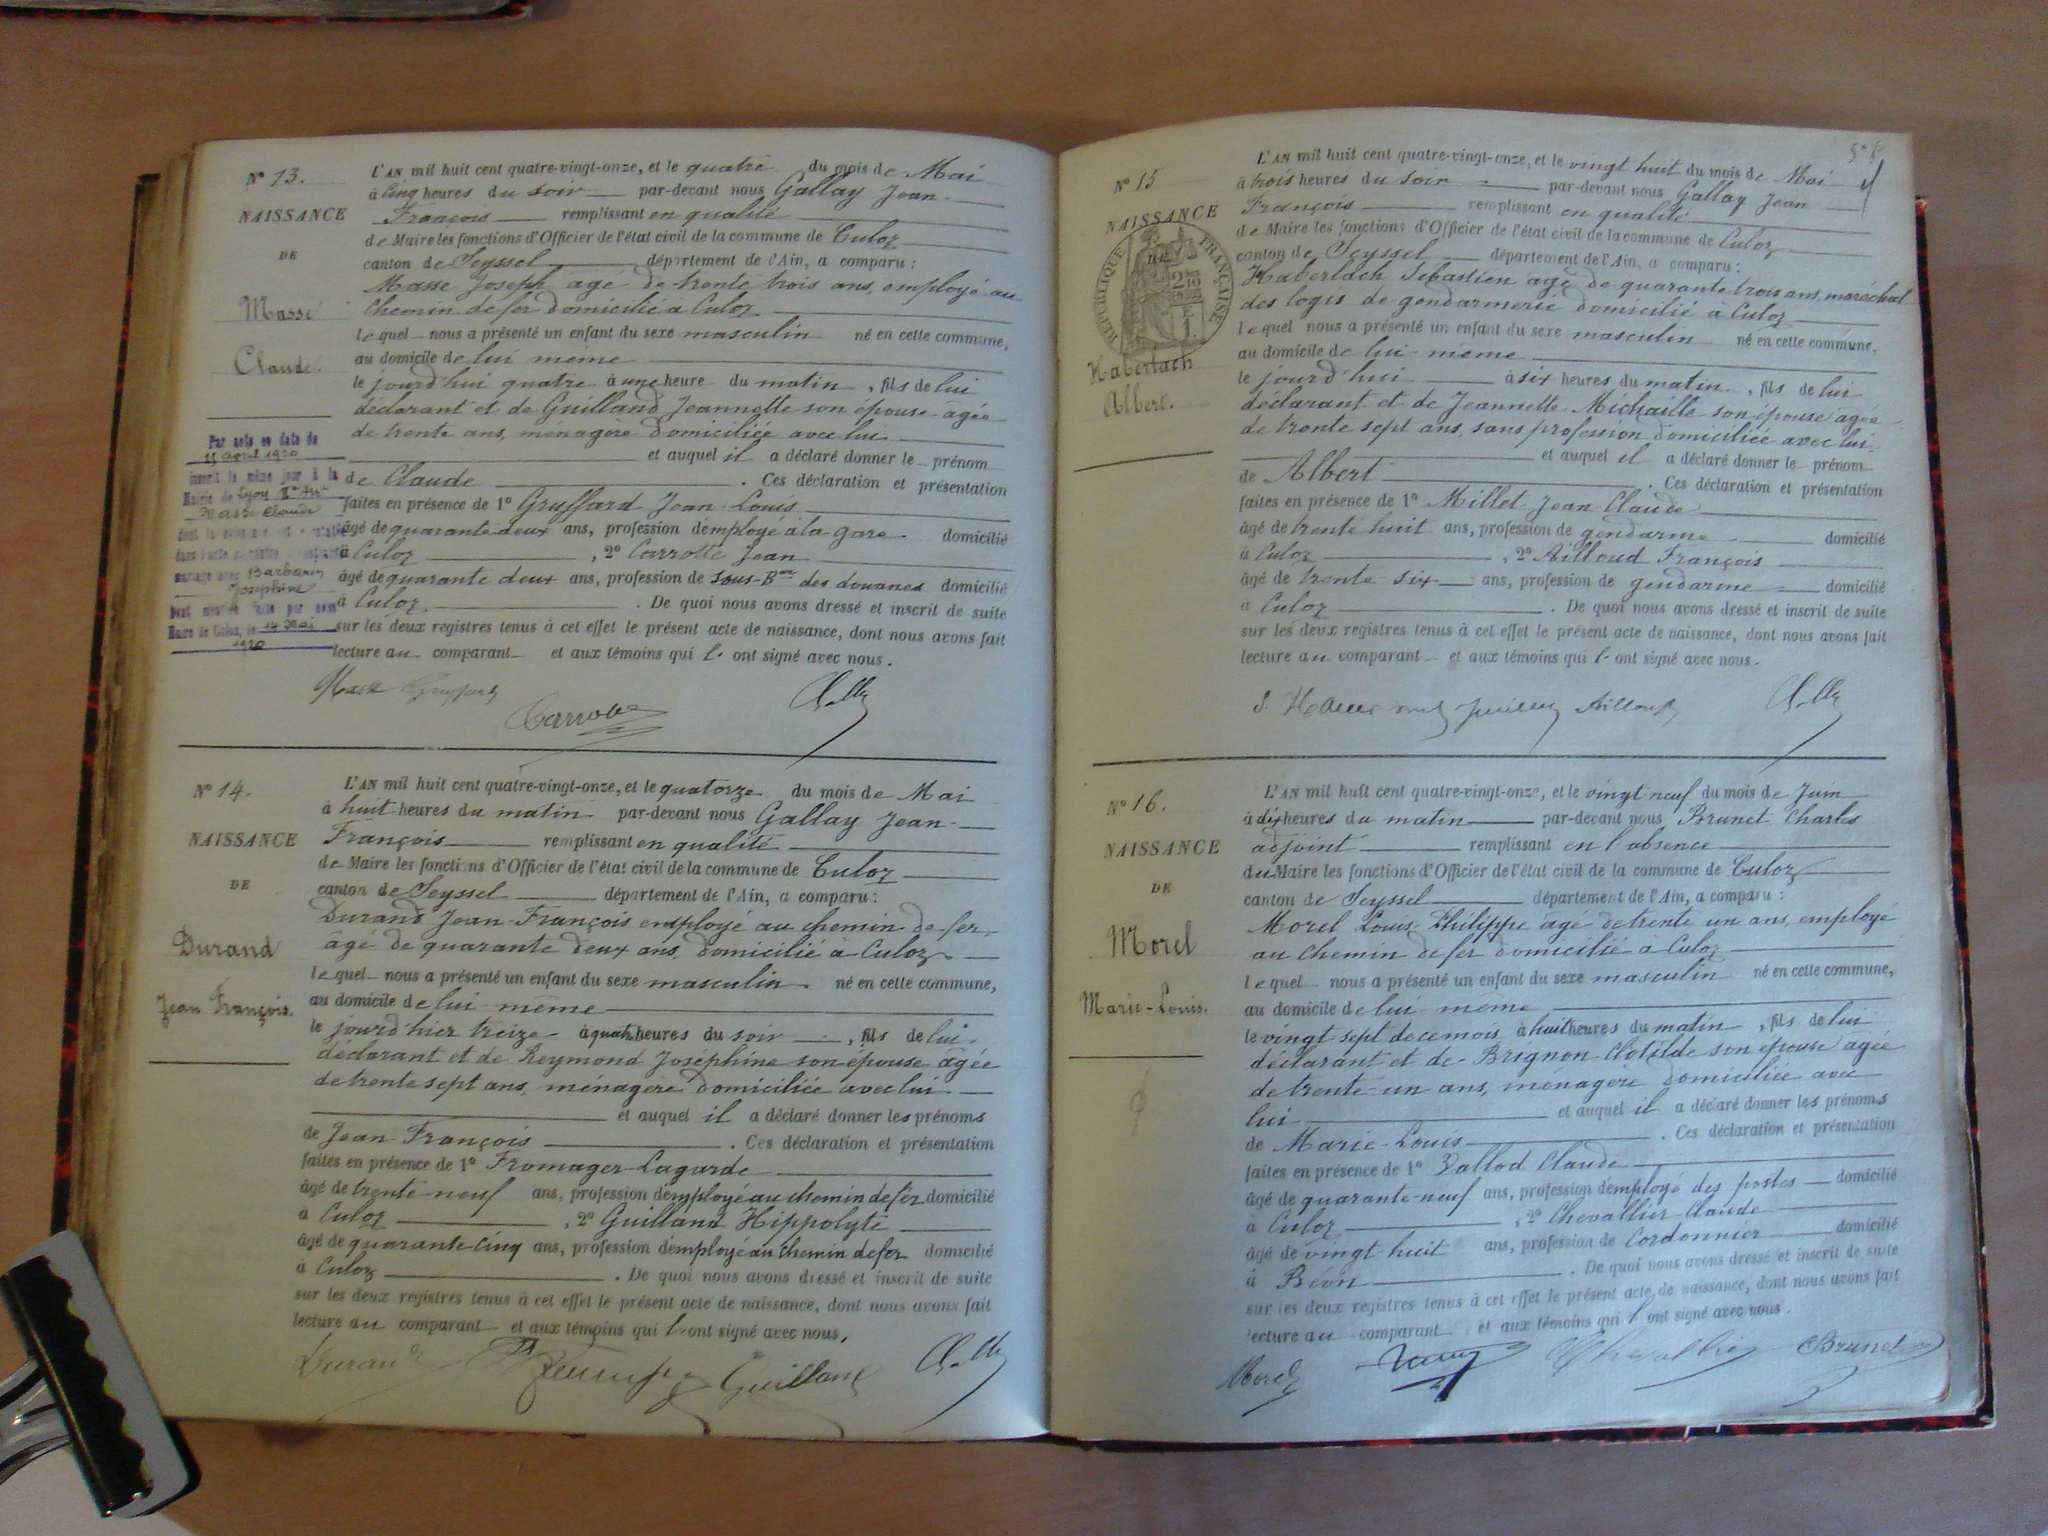 N° 13.
NAISSANCE
DE
Masse
Claude.
Par acte en date du
15 avril 1920
inscrit le même jour à la
Mairie de Lyon
Masse Claude
mariage avec Barbarin
Joséphine
Maire de Culoz, le 14 Mai
1920
L'AN mil huit cent quatre-vingt-onze, et le quatre du mois de Mai
à cinq heures du soir par-devant nous Gallay Jean
François remplissant en qualité
de Maire les fonctions d'Officier de l'état civil de la commune de Culoz
canton de Seyssel département de l'Ain, a comparu :
Masse Joseph âgé de trente trois ans, employé au
chemin de fer domicilié à Culoz
lequel nous a présenté un enfant du sexe masculin né en cette commune,
au domicile de lui même
le jourd'hui quatre à une heure du matin, fils de lui
déclarant et de Guilland Jeannette son épouse âgée
de trente ans, ménagère domiciliée avec lui
et auquel il a déclaré donner le prénom
de Claude. Ces déclaration et présentation
faites en présence de 1° Gruffard Jean Louis
âgé de quarante deux ans, profession d'employé à la gare domicilié
à Culoz, 2° Carrotte Jean
âgé de quarante deux ans, profession de sous-Ber des douanes domicilié
à Culoz. De quoi nous avons dressé et inscrit de suite
sur les deux registres tenus à cet effet le présent acte de naissance, dont nous avons fait
lecture au comparant et aux témoins qui l' ont signé avec nous.
Masse Gruffard
Carrotte
N° 14.
NAISSANCE
DE
Durand
Jean François.
L'AN mil huit cent quatre-vingt-onze, et le quatorze du mois de Mai
à huit heures du matin par-devant nous Gallay Jean-
François remplissant en qualité
de Maire les fonctions d'Officier de l'état civil de la commune de Culoz
canton de Seyssel département de l'Ain, a comparu :
Durand Jean-François employé au chemin de fer,
âgé de quarante deux ans, domicilié à Culoz
lequel nous a présenté un enfant du sexe masculin. né en cette commune,
au domicile de lui même
le jourd'hier treize à quatre heures du soir, fils de lui
déclarant et de Reymond Joséphine son épouse âgée
de trente sept ans, ménagère domiciliée avec lui
et auquel il a déclaré donner les prénoms
de Jean François. Ces déclaration et présentation
faites en présence de 1° Fromager Lagarde
âgé de trente-neuf ans, profession d'employé au chemin de fer domicilié
à Culoz, 2° Guilland Hippolyte
âgé de quarante-cinq ans, profession d'employé au chemin de fer domicilié
à Culoz. De quoi nous avons dressé et inscrit de suite
sur les deux registres tenus à cet effet le présent acte de naissance, dont nous avons fait
lecture au comparant et aux témoins qui l' ont signé avec nous.
Durand Guilland
N° 15
NAISSANCE
RÉPUBLIQUE FRANÇAISE
Haberlach
Albert.
L'AN mil huit cent quatre-vingt-onze, et le vingt huit du mois de Mai
à trois heures du soir par-devant nous Gallay Jean
François remplissant en qualité
de Maire les fonctions d'Officier de l'état civil de la commune de Culoz
canton de Seyssel département de l'Ain, a comparu :
Haberlach Sébastien âgé de quarante trois ans, maréchal
des logis de gendarmerie domicilié à Culoz
lequel nous a présenté un enfant du sexe masculin né en cette commune,
au domicile de lui même
le jourd'hui à six heures du matin, fils de lui
déclarant et de Jeannette Michaille son épouse âgée
de trente sept ans, sans profession domiciliée avec lui
et auquel il a déclaré donner le prénom
de Albert. Ces déclaration et présentation
faites en présence de 1° Millet Jean Claude
âgé de trente huit ans, profession de gendarme domicilié
à Culoz, 2° Ailloud François
âgé de trente six ans, profession de gendarme domicilié
à Culoz. De quoi nous avons dressé et inscrit de suite
sur les deux registres tenus à cet effet le présent acte de naissance, dont nous avons fait
lecture au comparant et aux témoins qui l' ont signé avec nous.
Ailloud
N° 16.
NAISSANCE
DE
Morel
Marie-Louis.
L'AN mil huit cent quatre-vingt-onze, et le vingt neuf du mois de Juin
à dix heures du matin par-devant nous Brunet Charles
adjoint remplissant en l'absence
du Maire les fonctions d'Officier de l'état civil de la commune de Culoz
canton de Seyssel département de l'Ain, a comparu :
Morel Louis-Philippe âgé de trente un ans, employé
au chemin de fer domicilié à Culoz
lequel nous a présenté un enfant du sexe masculin né en cette commune,
au domicile de lui même
le vingt sept de ce mois à huit heures du matin, fils de lui
déclarant et de Brignon Clotilde son épouse âgée
de trente un ans, ménagère domiciliée avec
lui et auquel il a déclaré donner les prénoms
de Marie-Louis. Ces déclaration et présentation
faites en présence de 1° Vallod Claude
âgé de quarante-neuf ans, profession d'employé des postes domicilié
à Culoz, 2° Chevallier Claude
âgé de vingt huit ans, profession de Cordonnier domicilié
à Béon. De quoi nous avons dressé et inscrit de suite
sur les deux registres tenus à cet effet le présent acte de naissance, dont nous avons fait
lecture au comparant et aux témoins qui l' ont signé avec nous.
Morel Chevallier Brunet